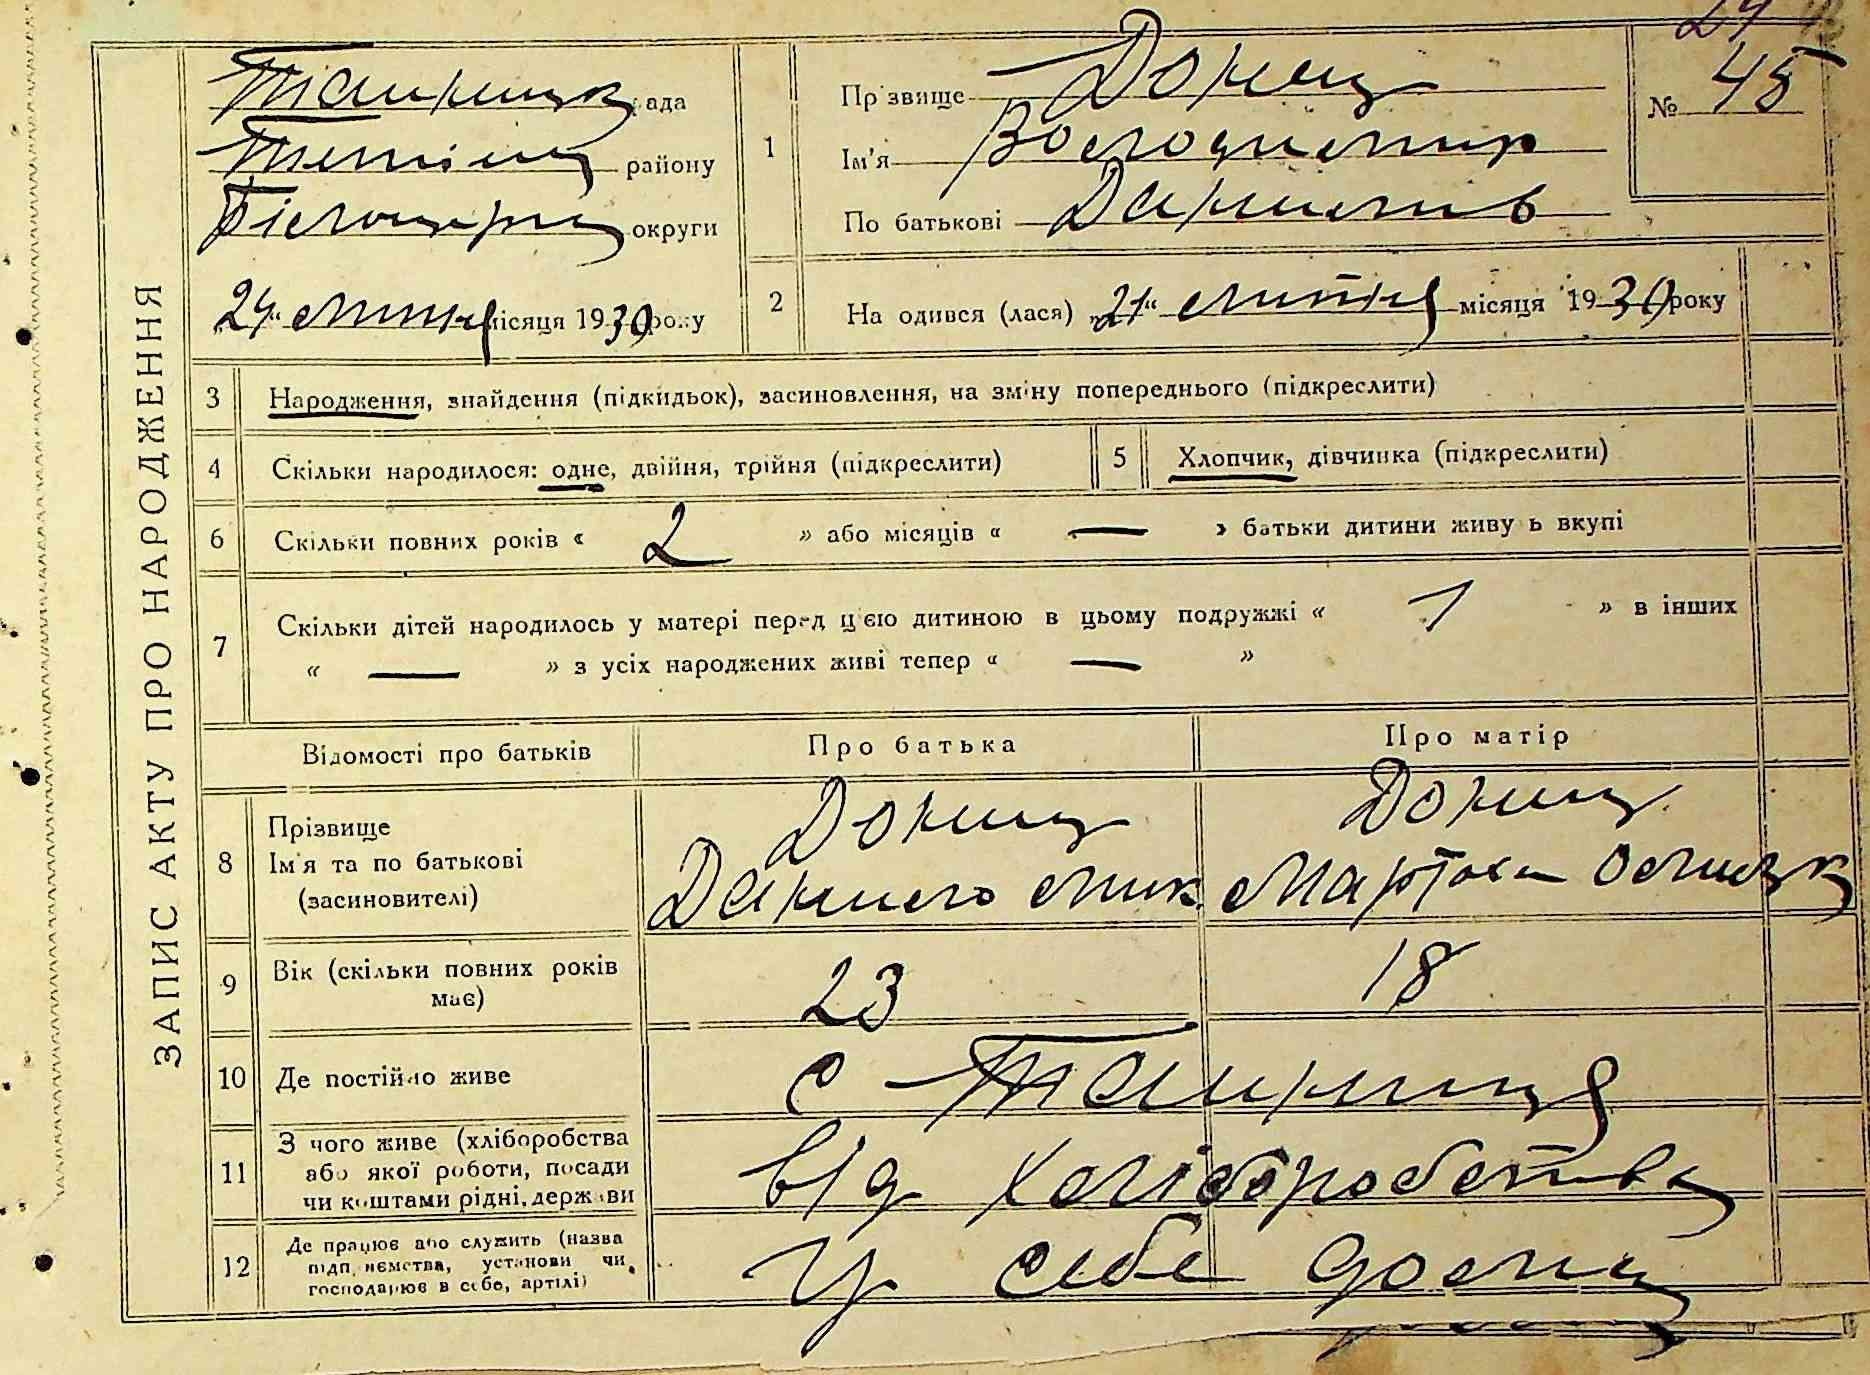 24
№ 45
ЗАПИС АКТУ ПРО НАРОДЖЕННЯ
ада
району
Білоцерк округи
„24“ липня місяця 1930 року
1
Прізвище Донец
Ім'я Володимир
По батькові Данилов
2
На одився (лася) „21“ липня місяця 1930 року
3 Народження, знайдення (підкидьок), засиновлення, на зміну попереднього (підкреслити)
4 Скільки народилося: одне, двійня, трійня (підкреслити) 5 Хлопчик, дівчинка (підкреслити)
6 Скільки повних років « 2 » або місяців « — » батьки дитини живу ь вкупі
7 Скільки дітей народилось у матері перед цією дитиною в цьому подружжі « 1 » в інших
« — » з усіх народжених живі тепер « — »
Відомості про батьків Про батька Про матір
8 Прізвище Донец Донец
Ім'я та по батькові Данило Мик.
(засиновителі)
9 Вік (скільки повних років має) 23 18
10 Де постійно живе с
11 З чого живе (хліборобства
або якої роботи, посади від хліборобства
чи коштами рідні, держави
12 Де працює або служить (назва
підп иємства, установи чи у себе дома
господарює в себе, артілі)